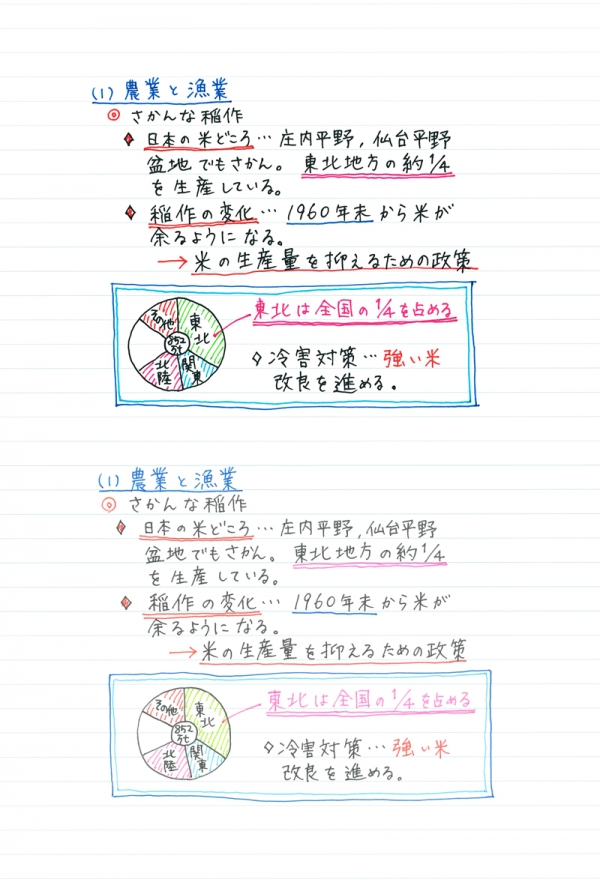 (1) 農業と漁業
◎ さかんな稲作
◆ 日本の米どころ… 庄内平野, 仙台平野
盆地でもさかん。 東北地方の約1/4
を生産している。
◆ 稲作の変化… 1960年末から米が
余るようになる。
→ 米の生産量を抑えるための政策
その他
東北
852万t
北陸
関東
東北は全国の1/4を占める
◇冷害対策…強い米
改良を進める。
(1) 農業と漁業
◎ さかんな稲作
◆ 日本の米どころ… 庄内平野, 仙台平野
盆地でもさかん。 東北地方の約1/4
を生産している。
◆ 稲作の変化… 1960年末から米が
余るようになる。
→ 米の生産量を抑えるための政策
その他
東北
852万t
北陸
関東
東北は全国の1/4を占める
◇冷害対策…強い米
改良を進める。